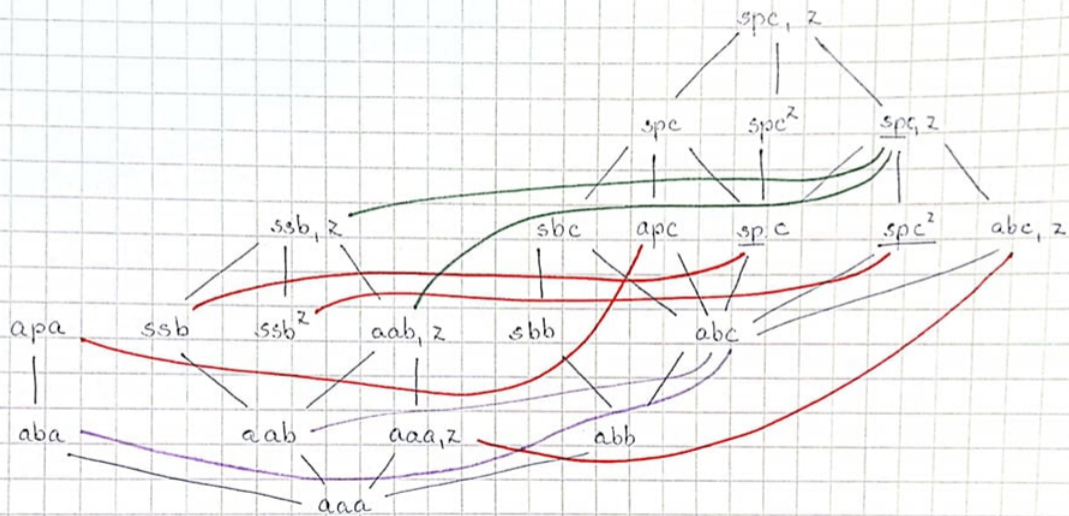 spc, z
spc spc² spc, z
ssb, z sbc apc spc spc² abc, z
apa ssb ssb² aab, z sbb abc
aba aab aaa,z abb
aaa